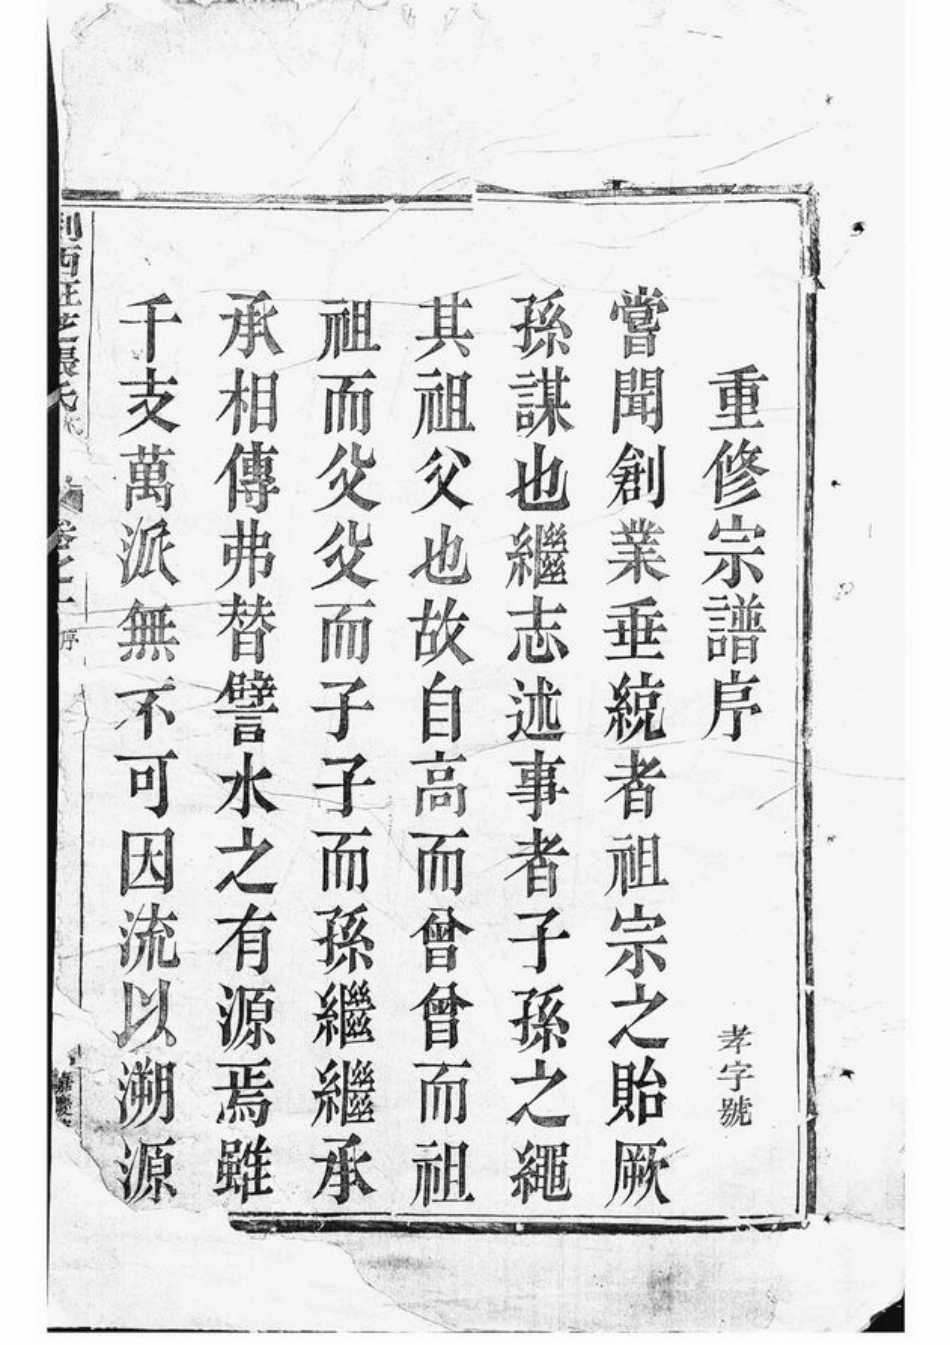 重修宗譜序
孝字號
嘗聞創業垂統者祖宗之貽厥
孫謀也繼志述事者子孫之繩
其祖父也故自高而曾曾而祖
祖而父父而子子而孫繼繼承
承相傳弗替譬水之有源焉雖
千支萬派無不可因流以溯源
西 張氏
卷之一
序
嘉慶